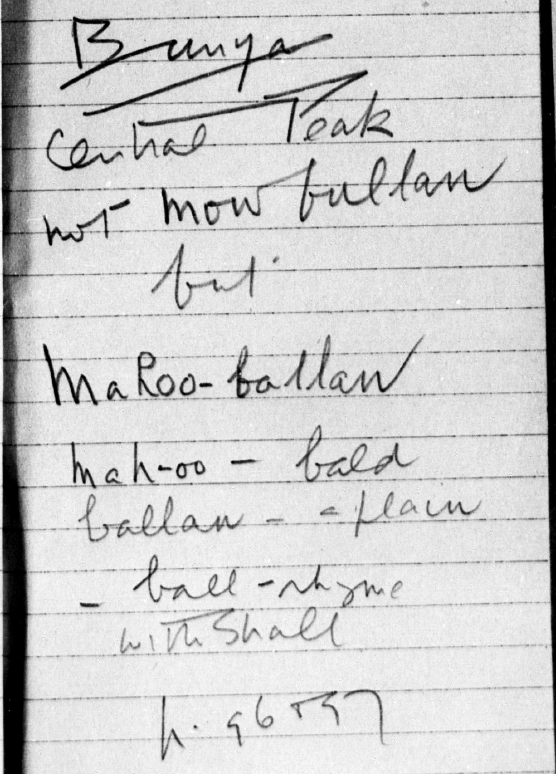 Bunya
Central Peak
not Mowbullan
but
MaRoo-ballan
Mah-oo - bald
ballan - a plain
- ball - rhyme
with Shall
p. 96 + 97